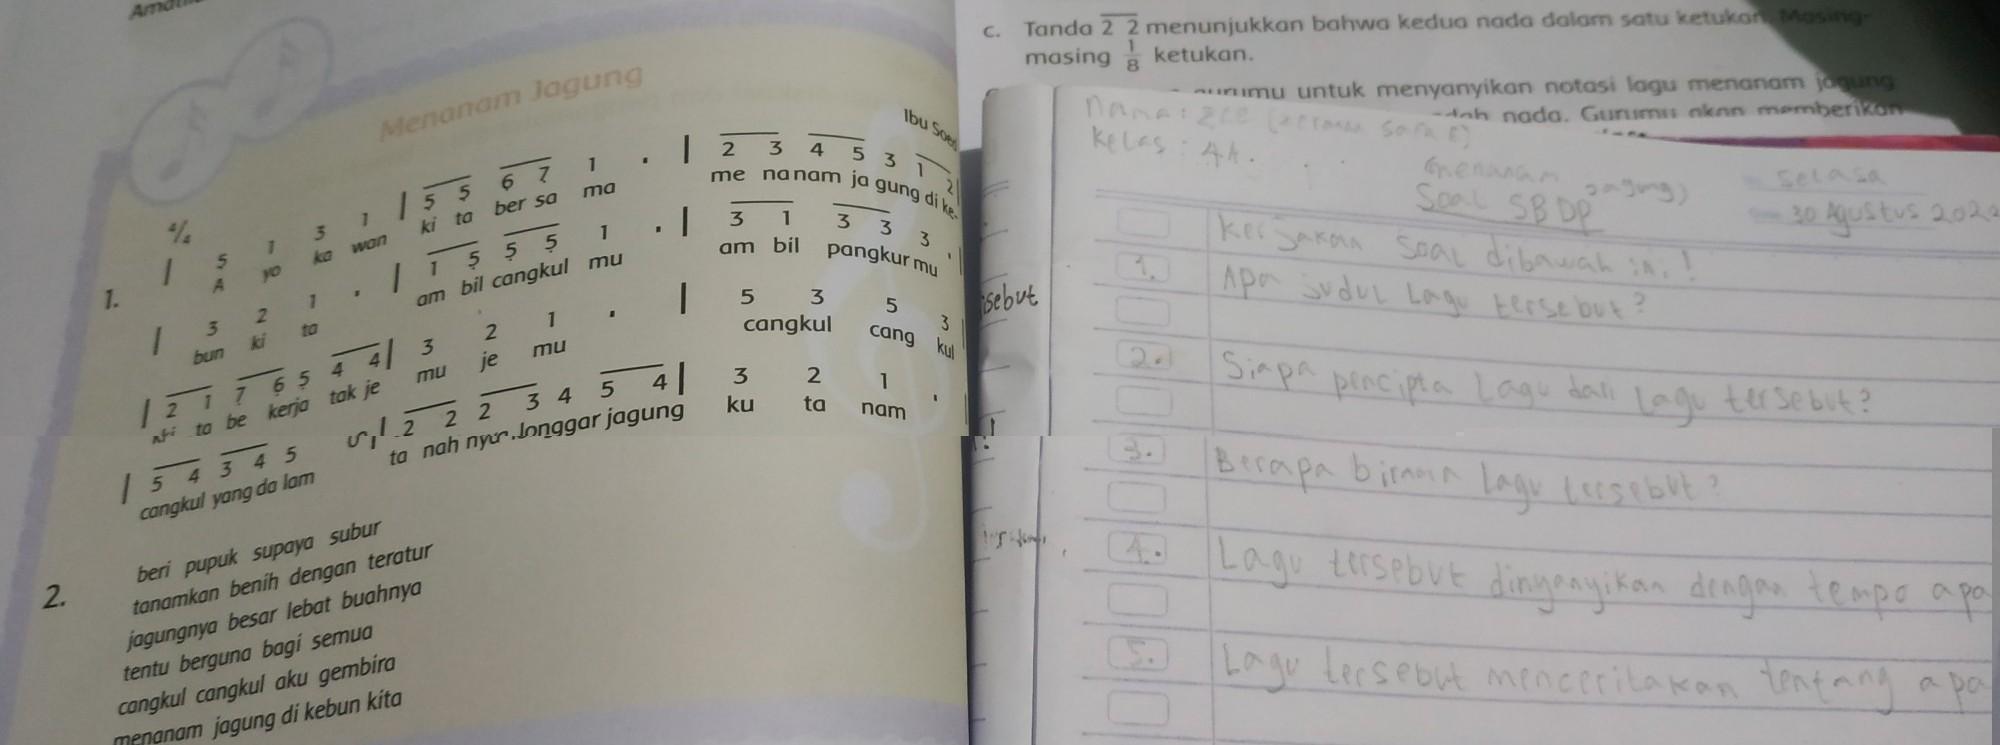 Menanam Jagung
Ibu
4/4
1.
| 5 1 3 1 | 5 5 6 7 1 . | 2 3 4 5 3 1 2 |
A yo ka wan ki ta ber sa ma me na nam ja gung di ke-
| 3 2 1 . | 1 5 5 5 1 . | 3 1 3 3 3 . |
bun ki ta am bil cangkul mu am bil pangkur mu
| 2 1 7 6 5 4 4 | 3 2 1 . | 5 3 5 3 |
ki ta be kerja tak je mu je mu cangkul cang kul
| 5 4 3 4 5 | 2 2 2 3 4 5 4 | 3 2 1 . |
cangkul yang da lam ta nah longgar jagung ku ta nam
2.
beri pupuk supaya subur
tanamkan benih dengan teratur
jagungnya besar lebat buahnya
tentu berguna bagi semua
cangkul cangkul aku gembira
menanam jagung di kebun kita
c. Tanda 2 2 menunjukkan bahwa kedua nada dalam satu ketukan. Masing-
masing 1/8 ketukan.
untuk menyanyikan notasi lagu menanam jagung
nada. Gurumu akan memberikan
sebut
Nama:
Kelas: 4A.
Selasa
30 Agustus 2022
(menanam jagung)
Soal SBDP
Kerjakan soal dibawah ini!
1. Apa judul Lagu tersebut?
2. Siapa pencipta Lagu dari Lagu tersebut?
3. Berapa birama Lagu tersebut?
4. Lagu tersebut dinyanyikan dengan tempo apa
5. Lagu tersebut menceritakan tentang apa